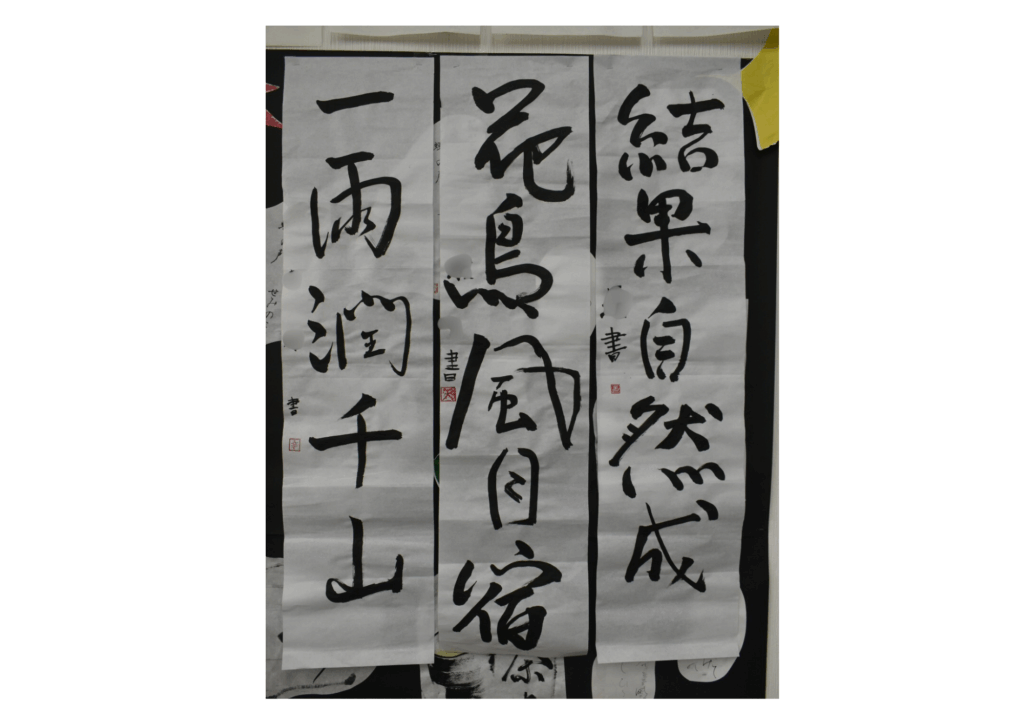 結果自然成
書
花鳥風目宿
書
一雨潤千山
書